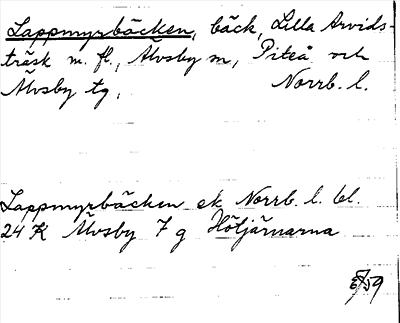 Lappmyrbäcken, bäck, Lilla Arvids-
träsk m. fl., Älvsby sn, Piteå och
Älvsby tg. Norrb. l.
Lappmyrbäcken ek Norrb. l. bl.
24 K Älvsby 7 g Höljärnarna